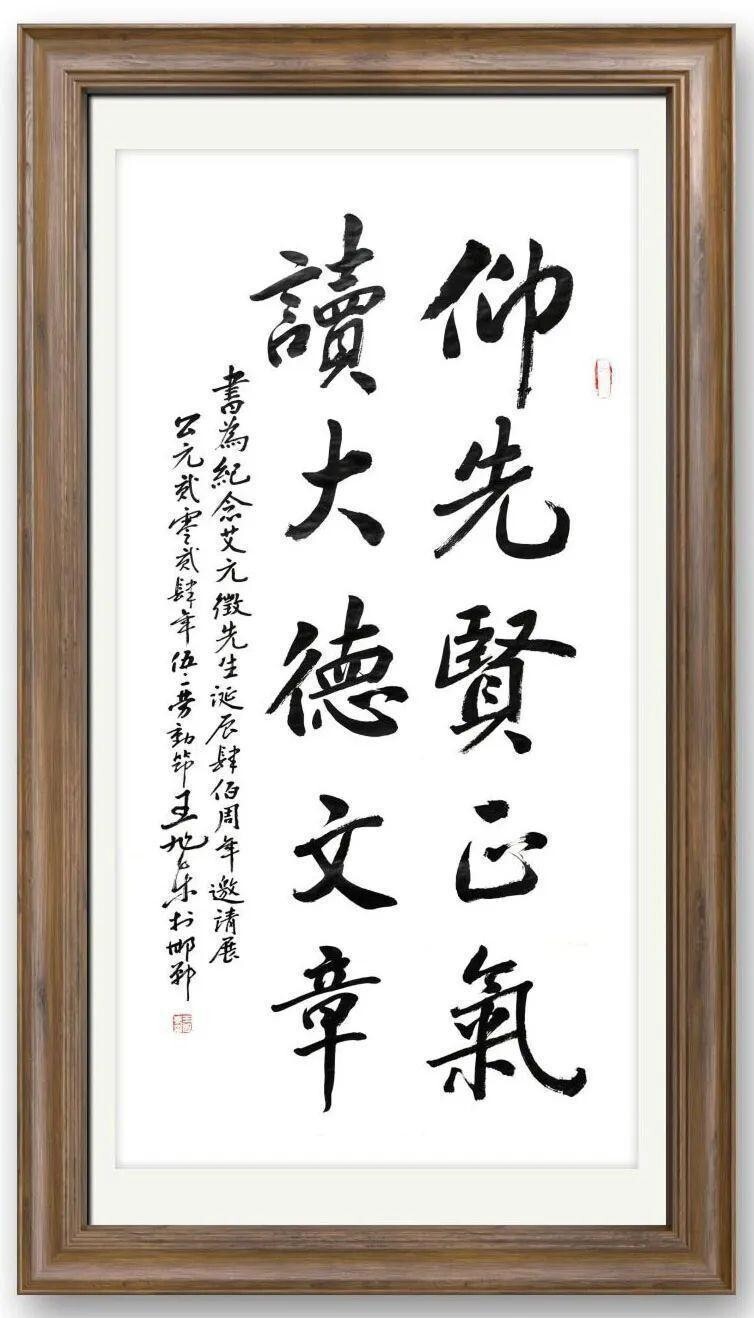 仰先賢正氣
讀大德文章
書為紀念艾元徵先生誕辰肆佰周年邀請展
公元貳零貳肆年伍一勞動節王於邯鄲